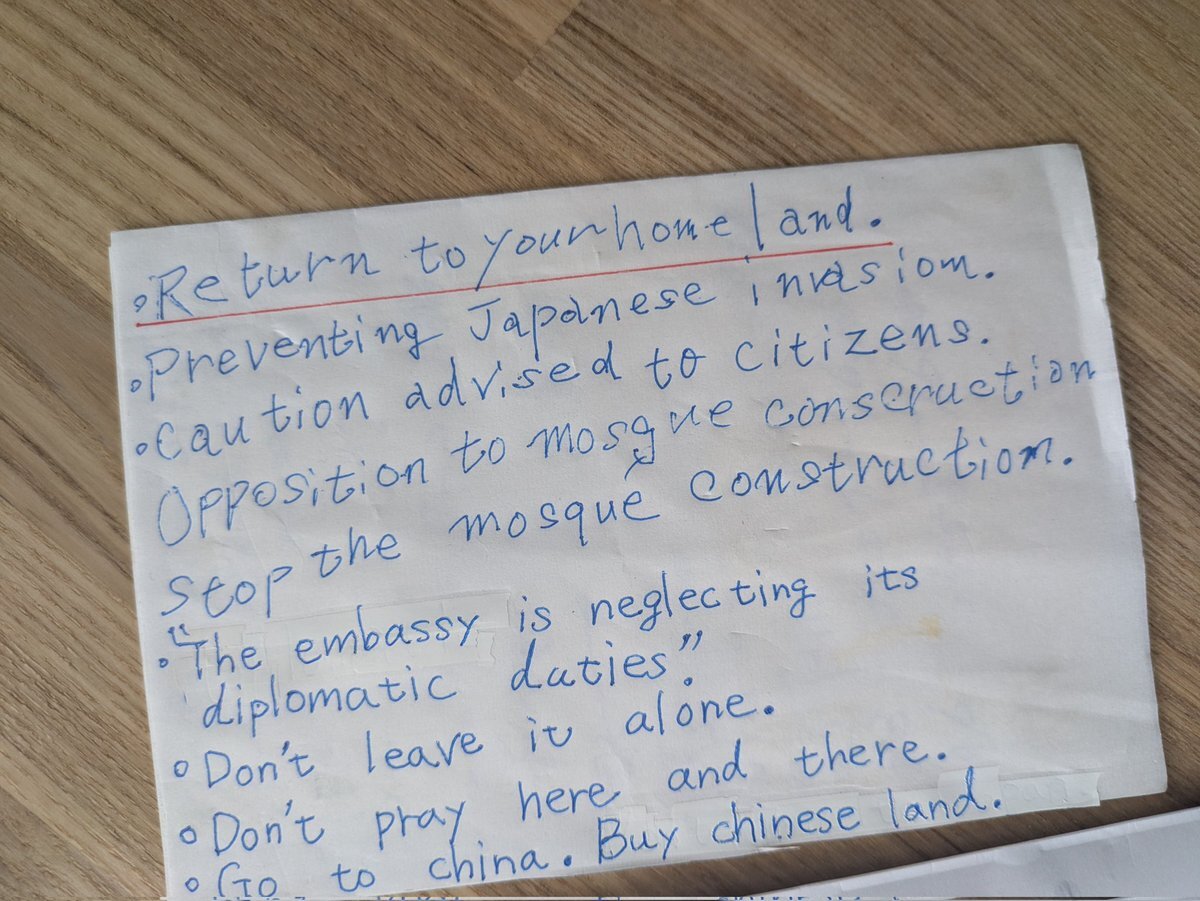 ◦Return to your homeland.
◦Preventing Japanese invasion.
◦Caution advised to citizens.
Opposition to mosque conscruction
Stop the mosque construction.
◦"The embassy is neglecting its
diplomatic duties".
◦Don't leave it alone.
◦Don't pray here and there.
◦Go to china. Buy chinese land.